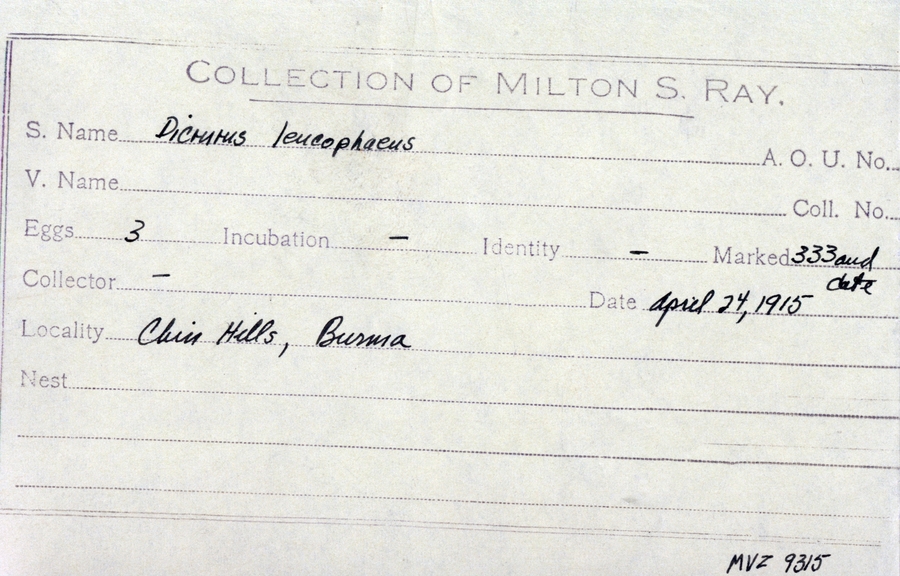 COLLECTION OF MILTON S. RAY.
S. Name Dicrurus leucophaeus A. O. U. No.
V. Name Coll. No.
Eggs 3 Incubation – Identity – Marked 333 and date
Collector – Date April 24, 1915
Locality Chin Hills, Burma
Nest
MVZ 9315